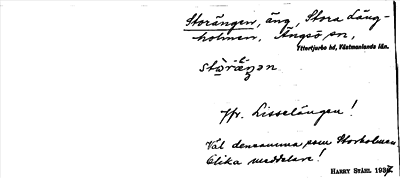 Storängen, äng, Stora Läng-
holmen, Ängsö sn,
Yttertjurbo hd, Västmanlands län.
Jfr. Lisselängen!
Väl densamma som Storholmen
Olika meddelare!
HARRY STÅHL 193